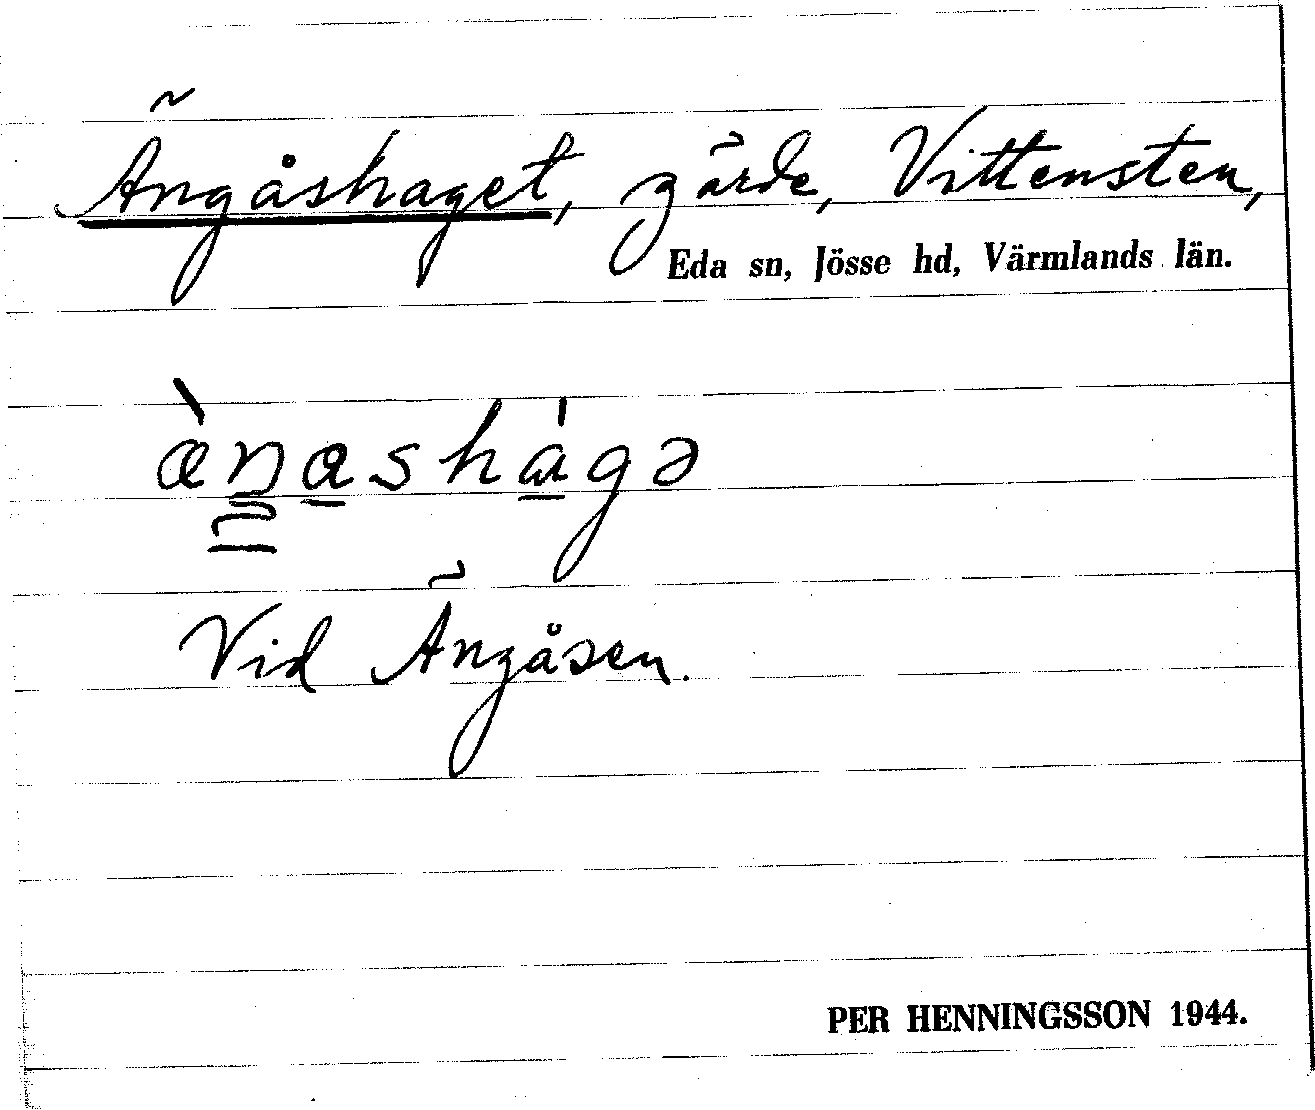 Ängåshaget, gärde, Vittensten,
Eda sn, Jösse hd, Värmlands län.
Vid Ängåsen.
PER HENNINGSSON 1944.